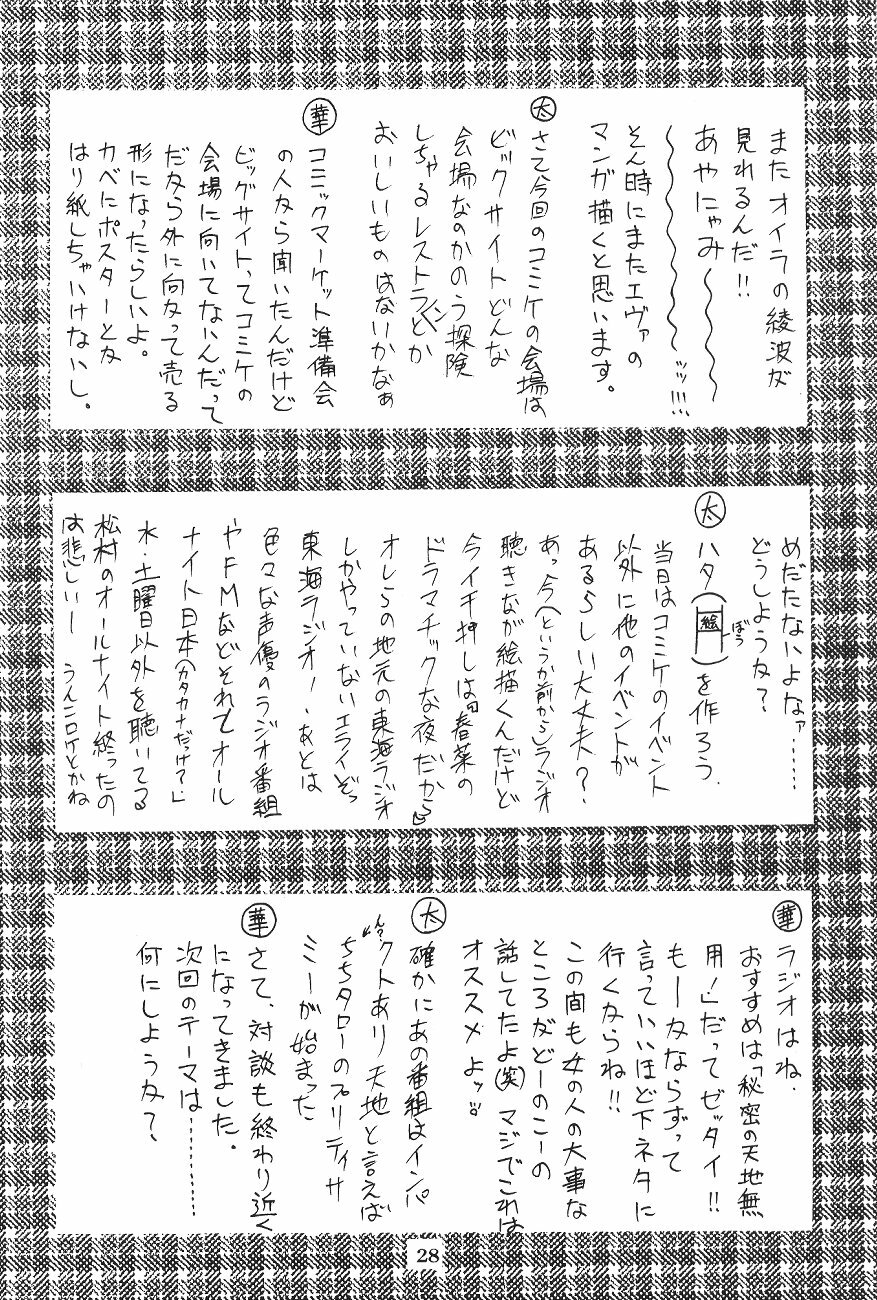 またオイラの綾波が
見れるんだ!!
あやにゃみ〜〜〜
〜〜〜〜〜〜ッッ!!!
そん時にまたエヴァの
マンガ描くと思います。
太 さて今回のコミケの会場は
ビックサイトどんな
会場なのかのう探険
しちゃるレストランとか
おいしいものはないかなぁ
華 コミックマーケット準備会
の人から聞いたんだけど
ビッグサイトってコミケの
会場に向いてないんだって
だから外に向かって売る
形になったらしいよ。
カベにポスターとか
はり紙しちゃいけないし。
めだたないよなァ……
どうしようか?
太 ハタ(絵 ぼう)を作ろう.
当日はコミケのイベント
以外に他のイベントが
あるらしい大丈夫?
あっ今(というか前から)ラジオ
聴きなが絵描くんだけど
今イチ押しは『春菜の
ドラマチックな夜だから』
オレらの地元の東海ラジオ
しかやっていないエライぞっ
東海ラジオ!、あとは
色々な声優のラジオ番組
やFMなどそれとオール
ナイト日本(カタカナだっけ?)
水・土曜日以外を聴いてる
松村のオールナイト終ったの
は悲しいー うんこロケとかね
華 ラジオはね.
おすすめは「秘密の天地無
用!」だってゼッタイ!!
もーかならずって
言っていいほど下ネタに
行くからね!!
この間も女の人の大事な
ところがどーのこーの
話してたよ(笑)マジでこれは
オススメよッ!!
太 確かにあの番組はインパ
クトあり天地と言えば
ん?
ちちタローのプリティサ
ミーが始まった
華 さて、対談も終わり近く
になってきました。
次回のテーマは………
何にしようか?
28